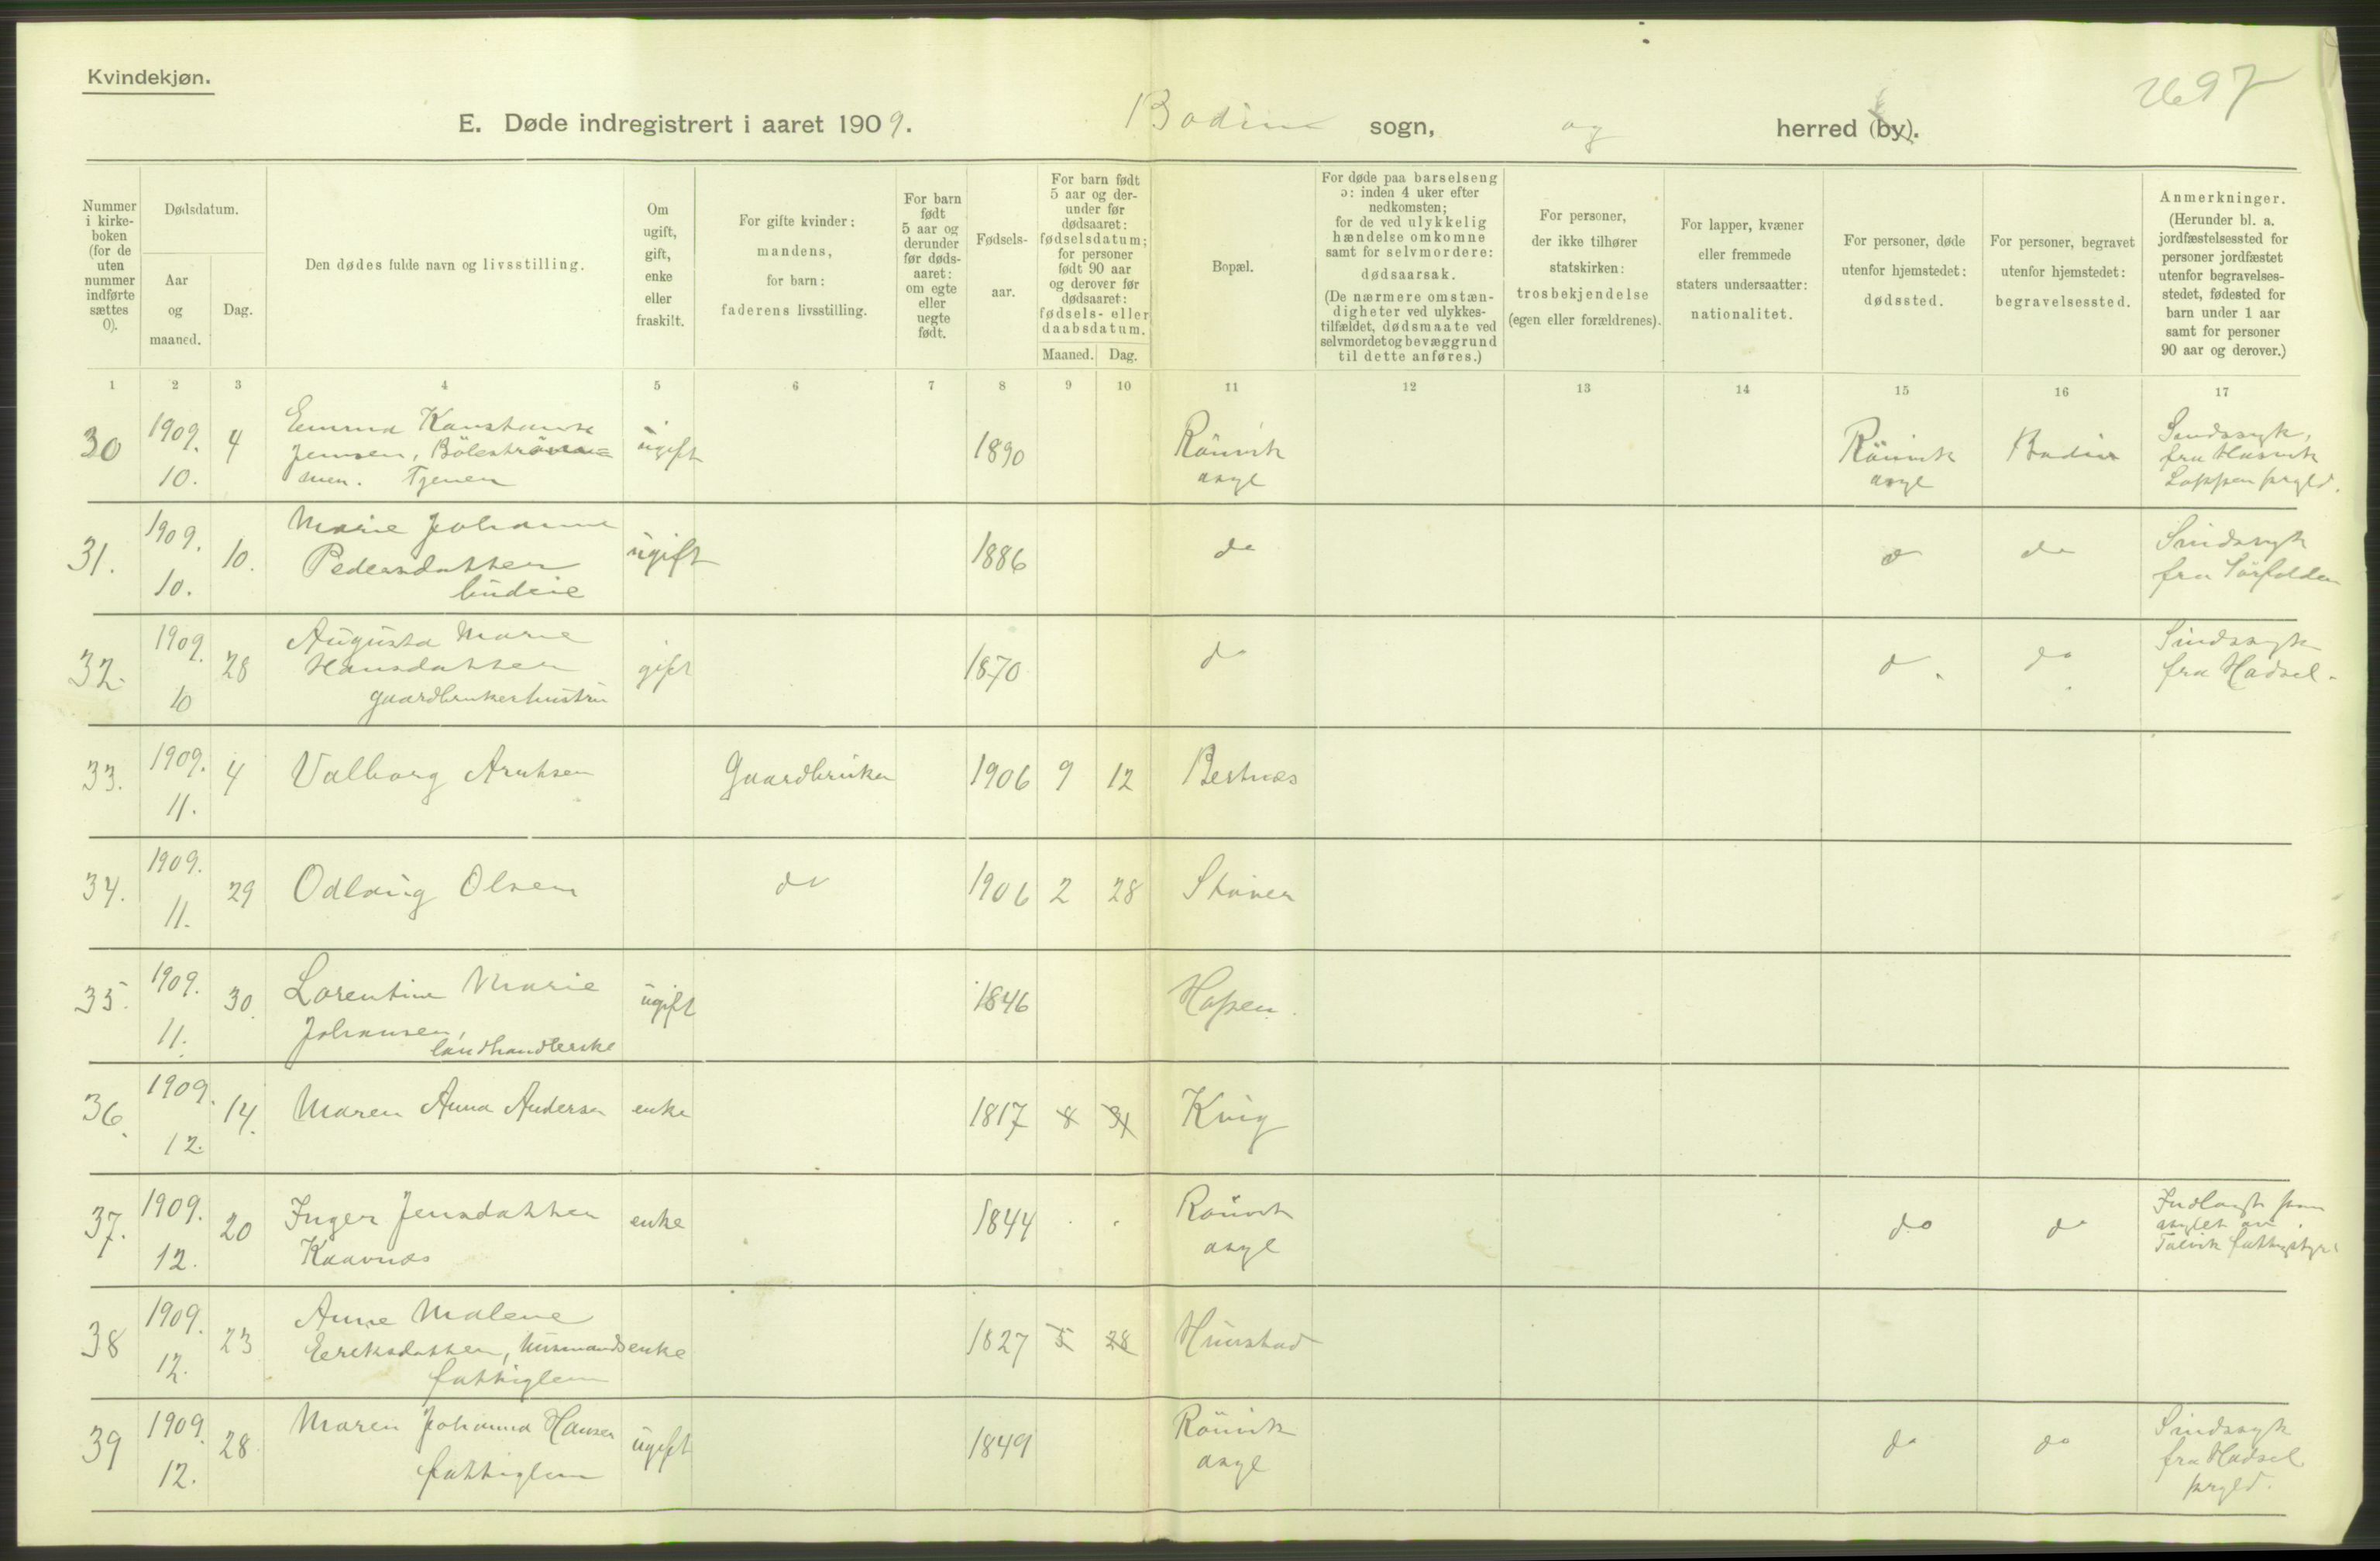 Kvindekjøn.
2697
E. Døde indregistrert i aaret 1909. Bodin sogn, og herred (by).
Nummer i kirke-boken (for de uten nummer indførte sættes 0).
Dødsdatum.
Aar og maaned.
Dag.
Den dødes fulde navn og livsstilling.
Om ugift, gift, enke eller fraskilt.
For gifte kvinder: mandens, for barn: faderens livsstilling.
For barn født 5 aar og derunder før døds-aaret: om egte eller uegte født.
Fødsels-aar.
For barn født 5 aar og der-under før dødsaaret: fødselsdatum; for personer født 90 aar og derover før dødsaaret: fødsels- eller daabsdatum.
Maaned. Dag.
Bopæl.
For døde paa barselseng ɔ: inden 4 uker efter nedkomsten; for de ved ulykkelig hændelse omkomne samt for selvmordere: dødsaarsak. (De nærmere omstæn-digheter ved ulykkes-tilfældet, dødsmaate ved selvmordet og bevæggrund til dette anføres.)
For personer, der ikke tilhører statskirken: trosbekjendelse (egen eller forældrenes).
For lapper, kvæner eller fremmede staters undersaatter: nationalitet.
For personer, døde utenfor hjemstedet: dødssted.
For personer, begravet utenfor hjemstedet: begravelsessted.
Anmerkninger. (Herunder bl. a. jordfæstelsessted for personer jordfæstet utenfor begravelses-stedet, fødested for barn under 1 aar samt for personer 90 aar og derover.)
1 2 3 4 5 6 7 8 9 10 11 12 13 14 15 16 17
30 1909. 10. 4 Emma Konstanse Jensen, Tjener ugift 1890 Rönvik asyl Rönvik asyl Bodin Sindssyk, fra Hasvik Loppen prgld.
31. 1909. 10. 10. Marie Johanne Pedersdatter budeie ugift 1886 do do do Sindssyk fra Sörfolden
32. 1909. 10 28 Augusta Marie Hansdatter gaardbrukerhustru gift 1870 do do do Sindssyk fra Hadsel.
33. 1909. 11. 4 Valborg Arntsen Gaardbruker 1906 9 12 Bestnæs
34. 1909. 11. 29 Odlaug Olsen do 1906 2 28 Støver
35. 1909. 11. 30. Lorentine Marie Johansen, landhandlerske ugift 1846 Hopen.
36. 1909. 12. 14. Maren Anna Andersen enke 1817 8 31 Kvig
37. 1909. 12. 20 Inger Jensdatter Kaavnæs enke 1844 Rönvik asyl do do Indlagt paa asylet av Talvik fattigstyre
38 1909. 12. 23 Anne Malene Eriksdatter, husmandsenke fattiglem 1827 5 28 Hunstad
39 1909. 12. 28 Maren Johanna Hansen fattiglem ugift 1849 Rönvik asyl do do Sindssyk fra Hadsel prgld.